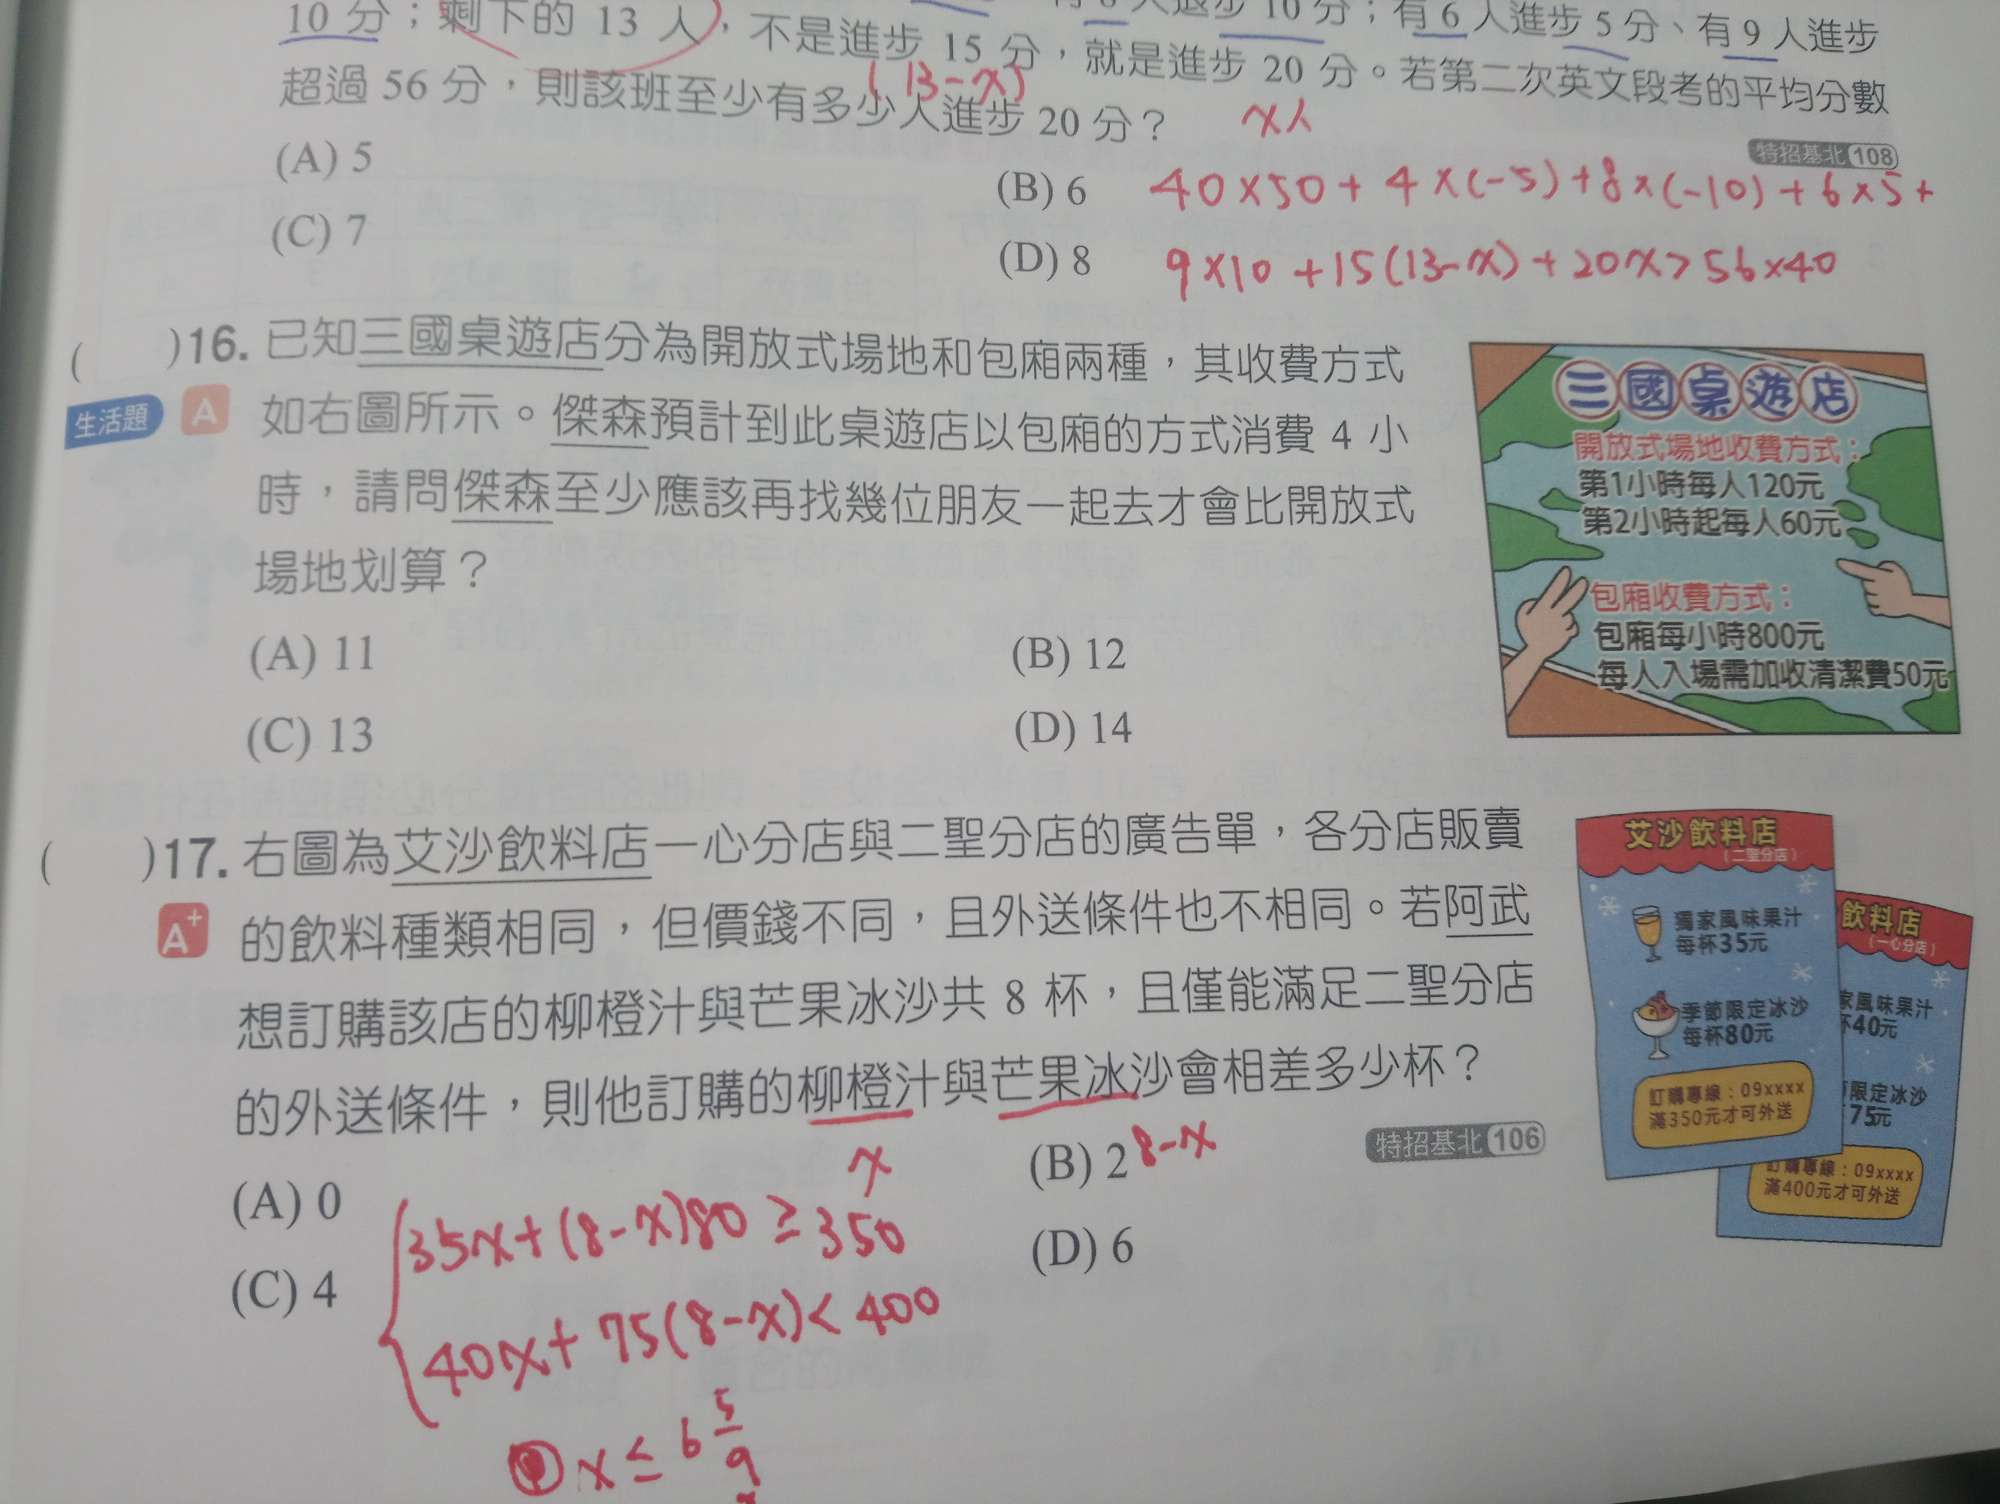 10 分；剩下的 13 人，不是進步 15 分，就是進步 20 分。若第二次英文段考的平均分數
退步 10 分；有 6 人進步 5 分、有 9 人進步
超過 56 分，則該班至少有多少人進步 20 分？
(13-x)
x人
特招基北 108
(A) 5
(B) 6
(C) 7
(D) 8
40×50+4×(-5)+8×(-10)+6×5+
9×10+15(13-x)+20x>56×40
( )16. 已知三國桌遊店分為開放式場地和包廂兩種，其收費方式
生活題 A 如右圖所示。傑森預計到此桌遊店以包廂的方式消費 4 小
時，請問傑森至少應該再找幾位朋友一起去才會比開放式
場地划算？
(A) 11
(B) 12
(C) 13
(D) 14
三國桌遊店
開放式場地收費方式：
第1小時每人120元
第2小時起每人60元
包廂收費方式：
包廂每小時800元
每人入場需加收清潔費50元
( )17. 右圖為艾沙飲料店一心分店與二聖分店的廣告單，各分店販賣
A+ 的飲料種類相同，但價錢不同，且外送條件也不相同。若阿武
想訂購該店的柳橙汁與芒果冰沙共 8 杯，且僅能滿足二聖分店
的外送條件，則他訂購的柳橙汁與芒果冰沙會相差多少杯？
特招基北 106
x
8-x
(A) 0
(B) 2
(C) 4
(D) 6
35x+(8-x)80≥350
40x+75(8-x)<400
x≤6 5/9
艾沙飲料店
(二聖分店)
獨家風味果汁
每杯35元
季節限定冰沙
每杯80元
訂購專線：09xxxx
滿350元才可外送
飲料店
(一心分店)
家風味果汁
杯40元
限定冰沙
75元
訂購專線：09xxxx
滿400元才可外送